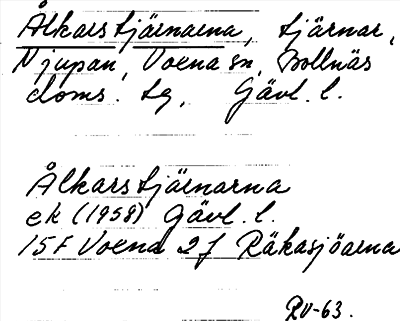 Ålkarstjärnarna, tjärnar,
N Jupan, Voxna sn, Bollnäs
doms. lg, Gävl. l.
Ålkarstjärnarna
ek (1958) Gävl. l.
15F Voxna 2f Räkasjöarna
RV-63.